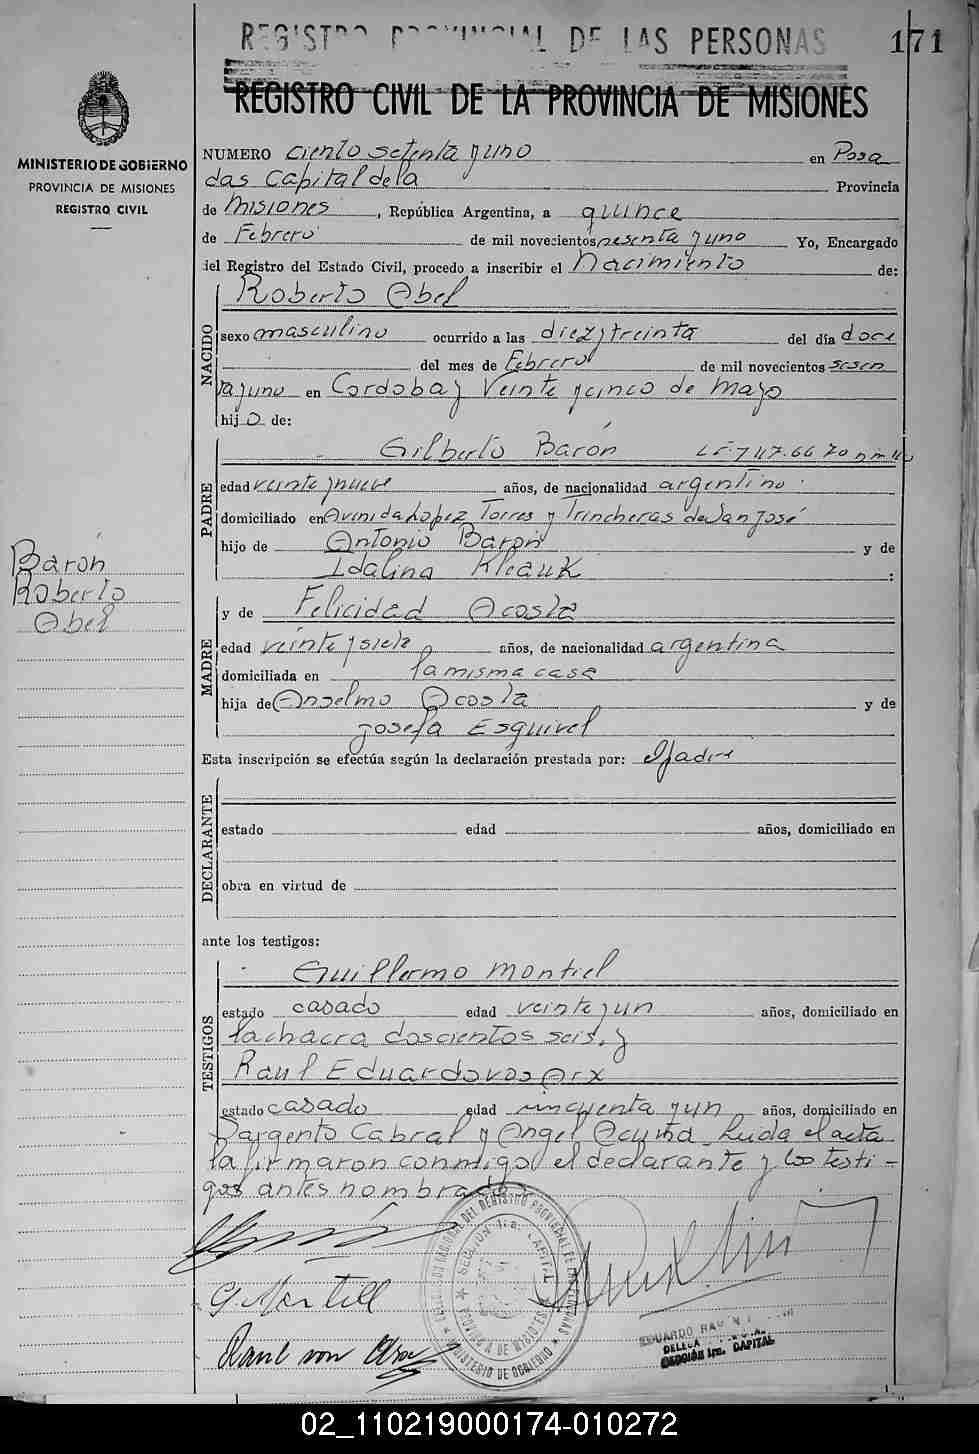 REGISTRO PROVINCIAL DE LAS PERSONAS
171
REGISTRO CIVIL DE LA PROVINCIA DE MISIONES
MINISTERIO DE GOBIERNO
PROVINCIA DE MISIONES
REGISTRO CIVIL
NUMERO ciento setenta y uno en Posa
das Capital de la Provincia
de Misiones, República Argentina, a quince
de Febrero de mil novecientos sesenta y uno Yo, Encargado
del Registro del Estado Civil, procedo a inscribir el Nacimiento de:
NACIDO
Roberto Abel
sexo masculino ocurrido a las diez y treinta del día doce
del mes de Febrero de mil novecientos sesen
ta y uno en Cordoba y Veinte y cinco de Mayo
hijo de:
PADRE
Gilberto Barón
edad veinte y nueve años, de nacionalidad argentino
domiciliado en Avenida Lopez Torres y Trincheras de San José
hijo de Antonio Barón y de
Idalina Kleauk :
Barón
Roberto
Abel
MADRE
y de Felicidad Acosta
edad veinte y siete años, de nacionalidad argentina
domiciliada en la misma casa
hija de Anselmo Acosta y de
Josefa Esquivel
Esta inscripción se efectúa según la declaración prestada por: el padre
DECLARANTE
estado edad años, domiciliado en
obra en virtud de
ante los testigos:
TESTIGOS
Guillermo Montiel
estado casado edad veinte y un años, domiciliado en
la chacra doscientos seis. y
Raul Eduardo von Arx
estado casado edad cincuenta y un años, domiciliado en
Sargento Cabral y Angel Acuña. Leida el acta
la firmaron conmigo el declarante y los testi-
gos antes nombrados
G. Montiell
Raul von Arx
SECCION 1ra. CAPITAL
PROVINCIA DE MISIONES
MINISTERIO DE GOBIERNO
EDUARDO
SECCION 1ra. CAPITAL
02_110219000174-010272